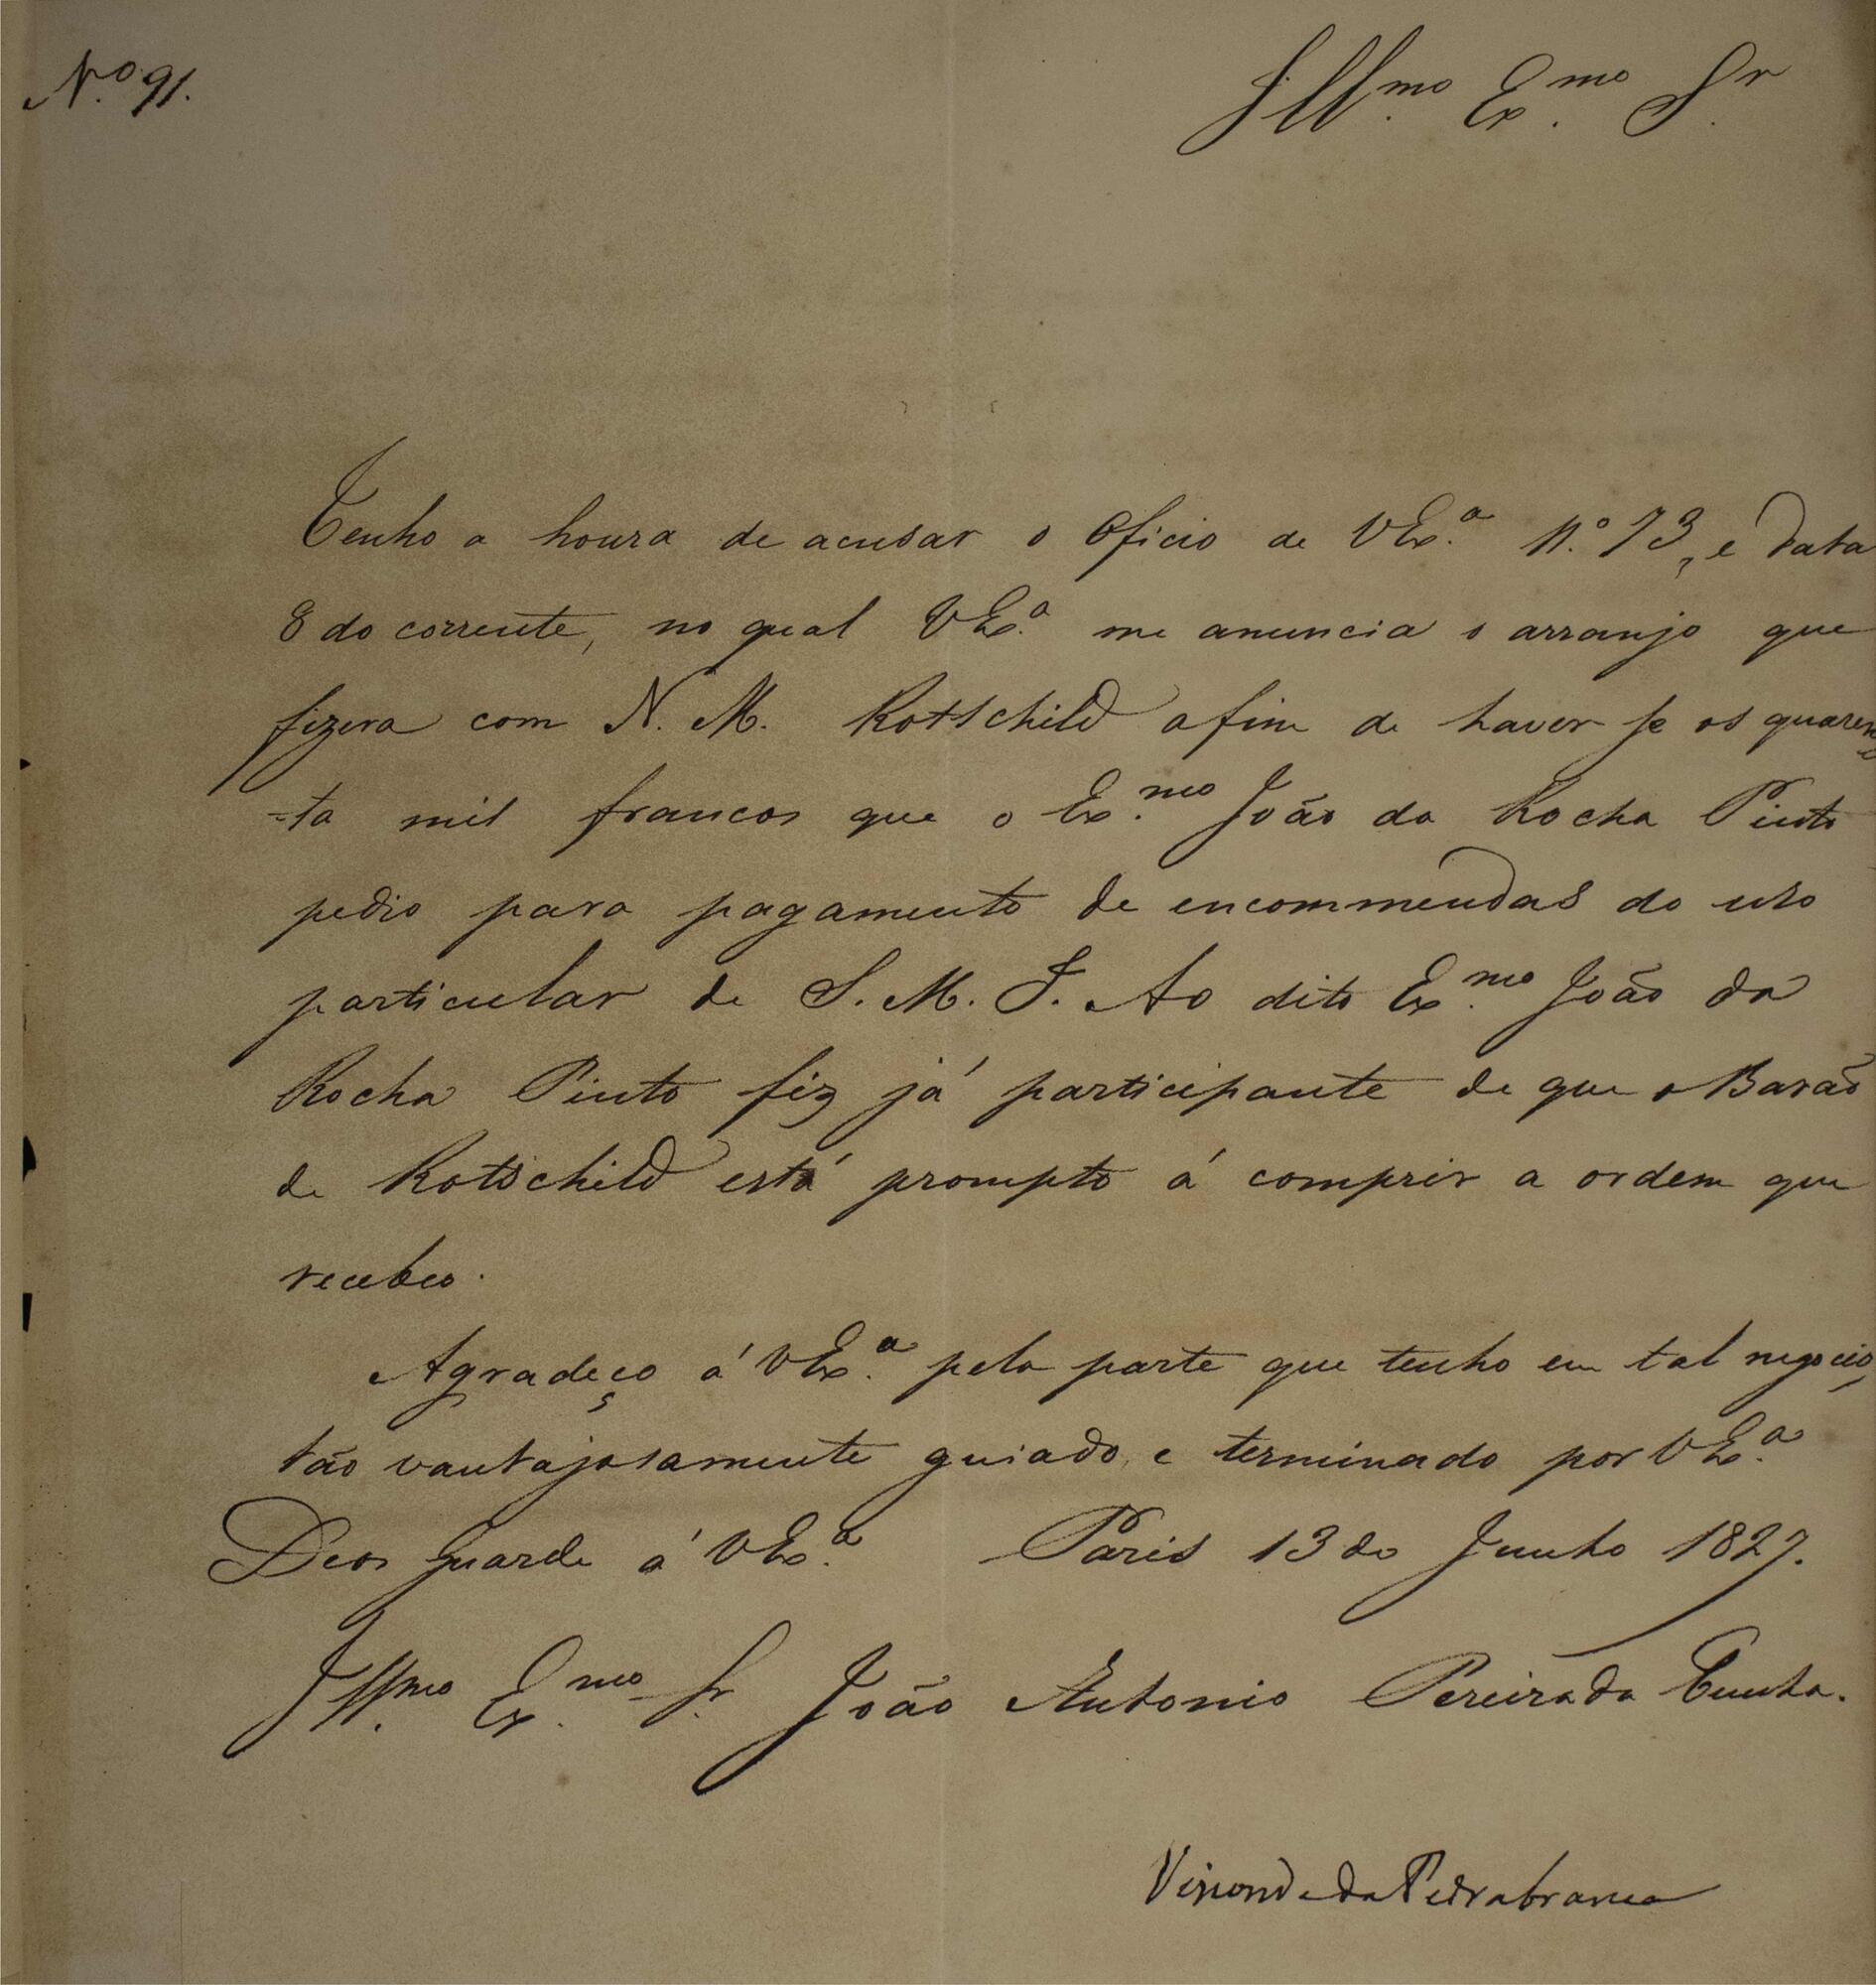 N.º 91.
Ill.mo Ex.mo Sr.
Tenho a honra de acusar o Oficio de VEx.ª N.º 73, e data
8 do corrente, no qual VEx.ª me anuncia o arranjo que
fizera com N. M. Rotschild afim de haver se os quaren
=ta mil francos que o Ex.mo João da Rocha Pinto
pedio para pagamento de encommendas do uso
particular de S. M. I. Ao dito Ex.mo João da
Rocha Pinto fiz já participante de que o Barão
de Rotschild está prompto á comprir a ordem que
recebeo.
Agradeço á VEx.ª pela parte que tenho em tal negocio,
tão vantajosamente guiado, e terminado por VEx.ª
Deos Guarde á VEx.ª Paris 13 de Junho 1827.
Ill.mo Ex.mo Sr. João Antonio Pereira da Cunha.
Visconde da Pedrabranca